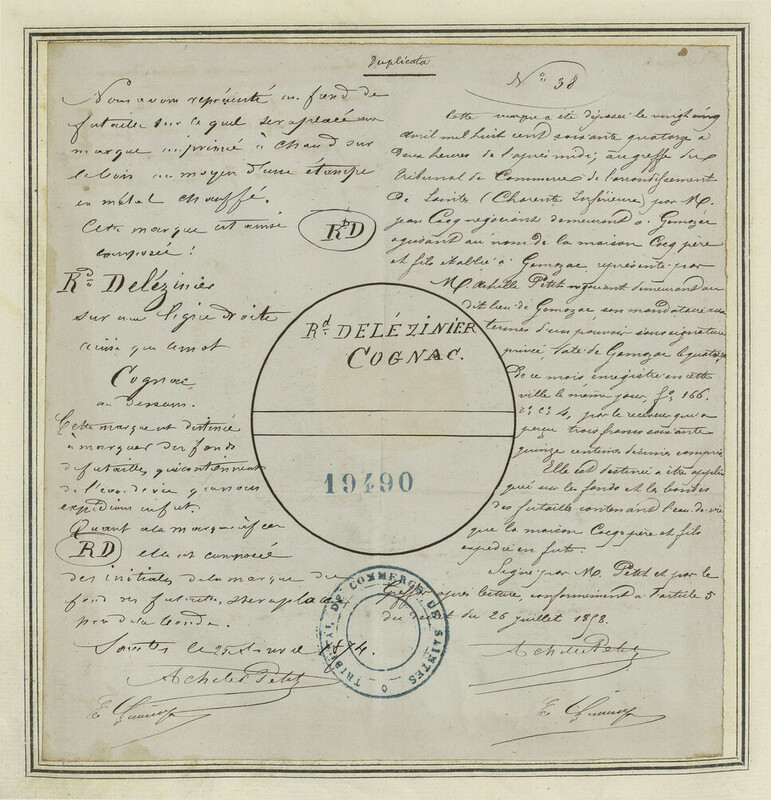 Duplicata
Nous avons représenté un fond de
futaille sur lequel sera placé une
marque imprimée à chaud sur
le bois au moyen d'une étampe
en métal chauffé.
Cette marque est ainsi
composée :
Rd Delézinier
sur une ligne droite
ainsi que le mot
Cognac
au dessous.
Cette marque est destinée
à marquer des fonds
de futailles qui contiennent
de l'eau de vie que nous
expédions en fut.
Quant à la marque
RD elle est composée
des initiales de la marque du
fond des futailles, sera placée
près de la bonde.
Saintes le 25 avril 1874.
Achille Petit
RdD
Rd DELÉZINIER
COGNAC.
19490
TRIBUNAL DE COMMERCE DE SAINTES
No 38
Cette marque a été déposée le vingt cinq
avril mil huit cent soixante quatorze à
deux heures de l'après midi, au greffe du
Tribunal de Commerce de l'arrondissement
de Saintes (Charente Inférieure) par M.
Jean Cocq négociant demeurant à Gemozac
agissant au nom de la maison Cocq père
et fils établie à Gemozac, représenté par
M. Achille Petit négociant demeurant au
dit lieu de Gemozac, son mandataire aux
termes d'un pouvoir sous signature
privée daté de Gemozac le quatorze
de ce mois enregistré en cette
ville le même jour, fo 166.
Ro Co 4, par le receveur qui a
perçu trois francs soixante
quinze centimes décimes compris
Elle est destinée à être appli
quée sur les fonds et la bondes
des futaille contenant l'eau de vie
que la maison Cocq père et fils
expédie en futs.
Signé par M. Petit et par le
Greffier après lecture, conformément à l'article 5
du décret du 26 juillet 1858.
Achille Petit